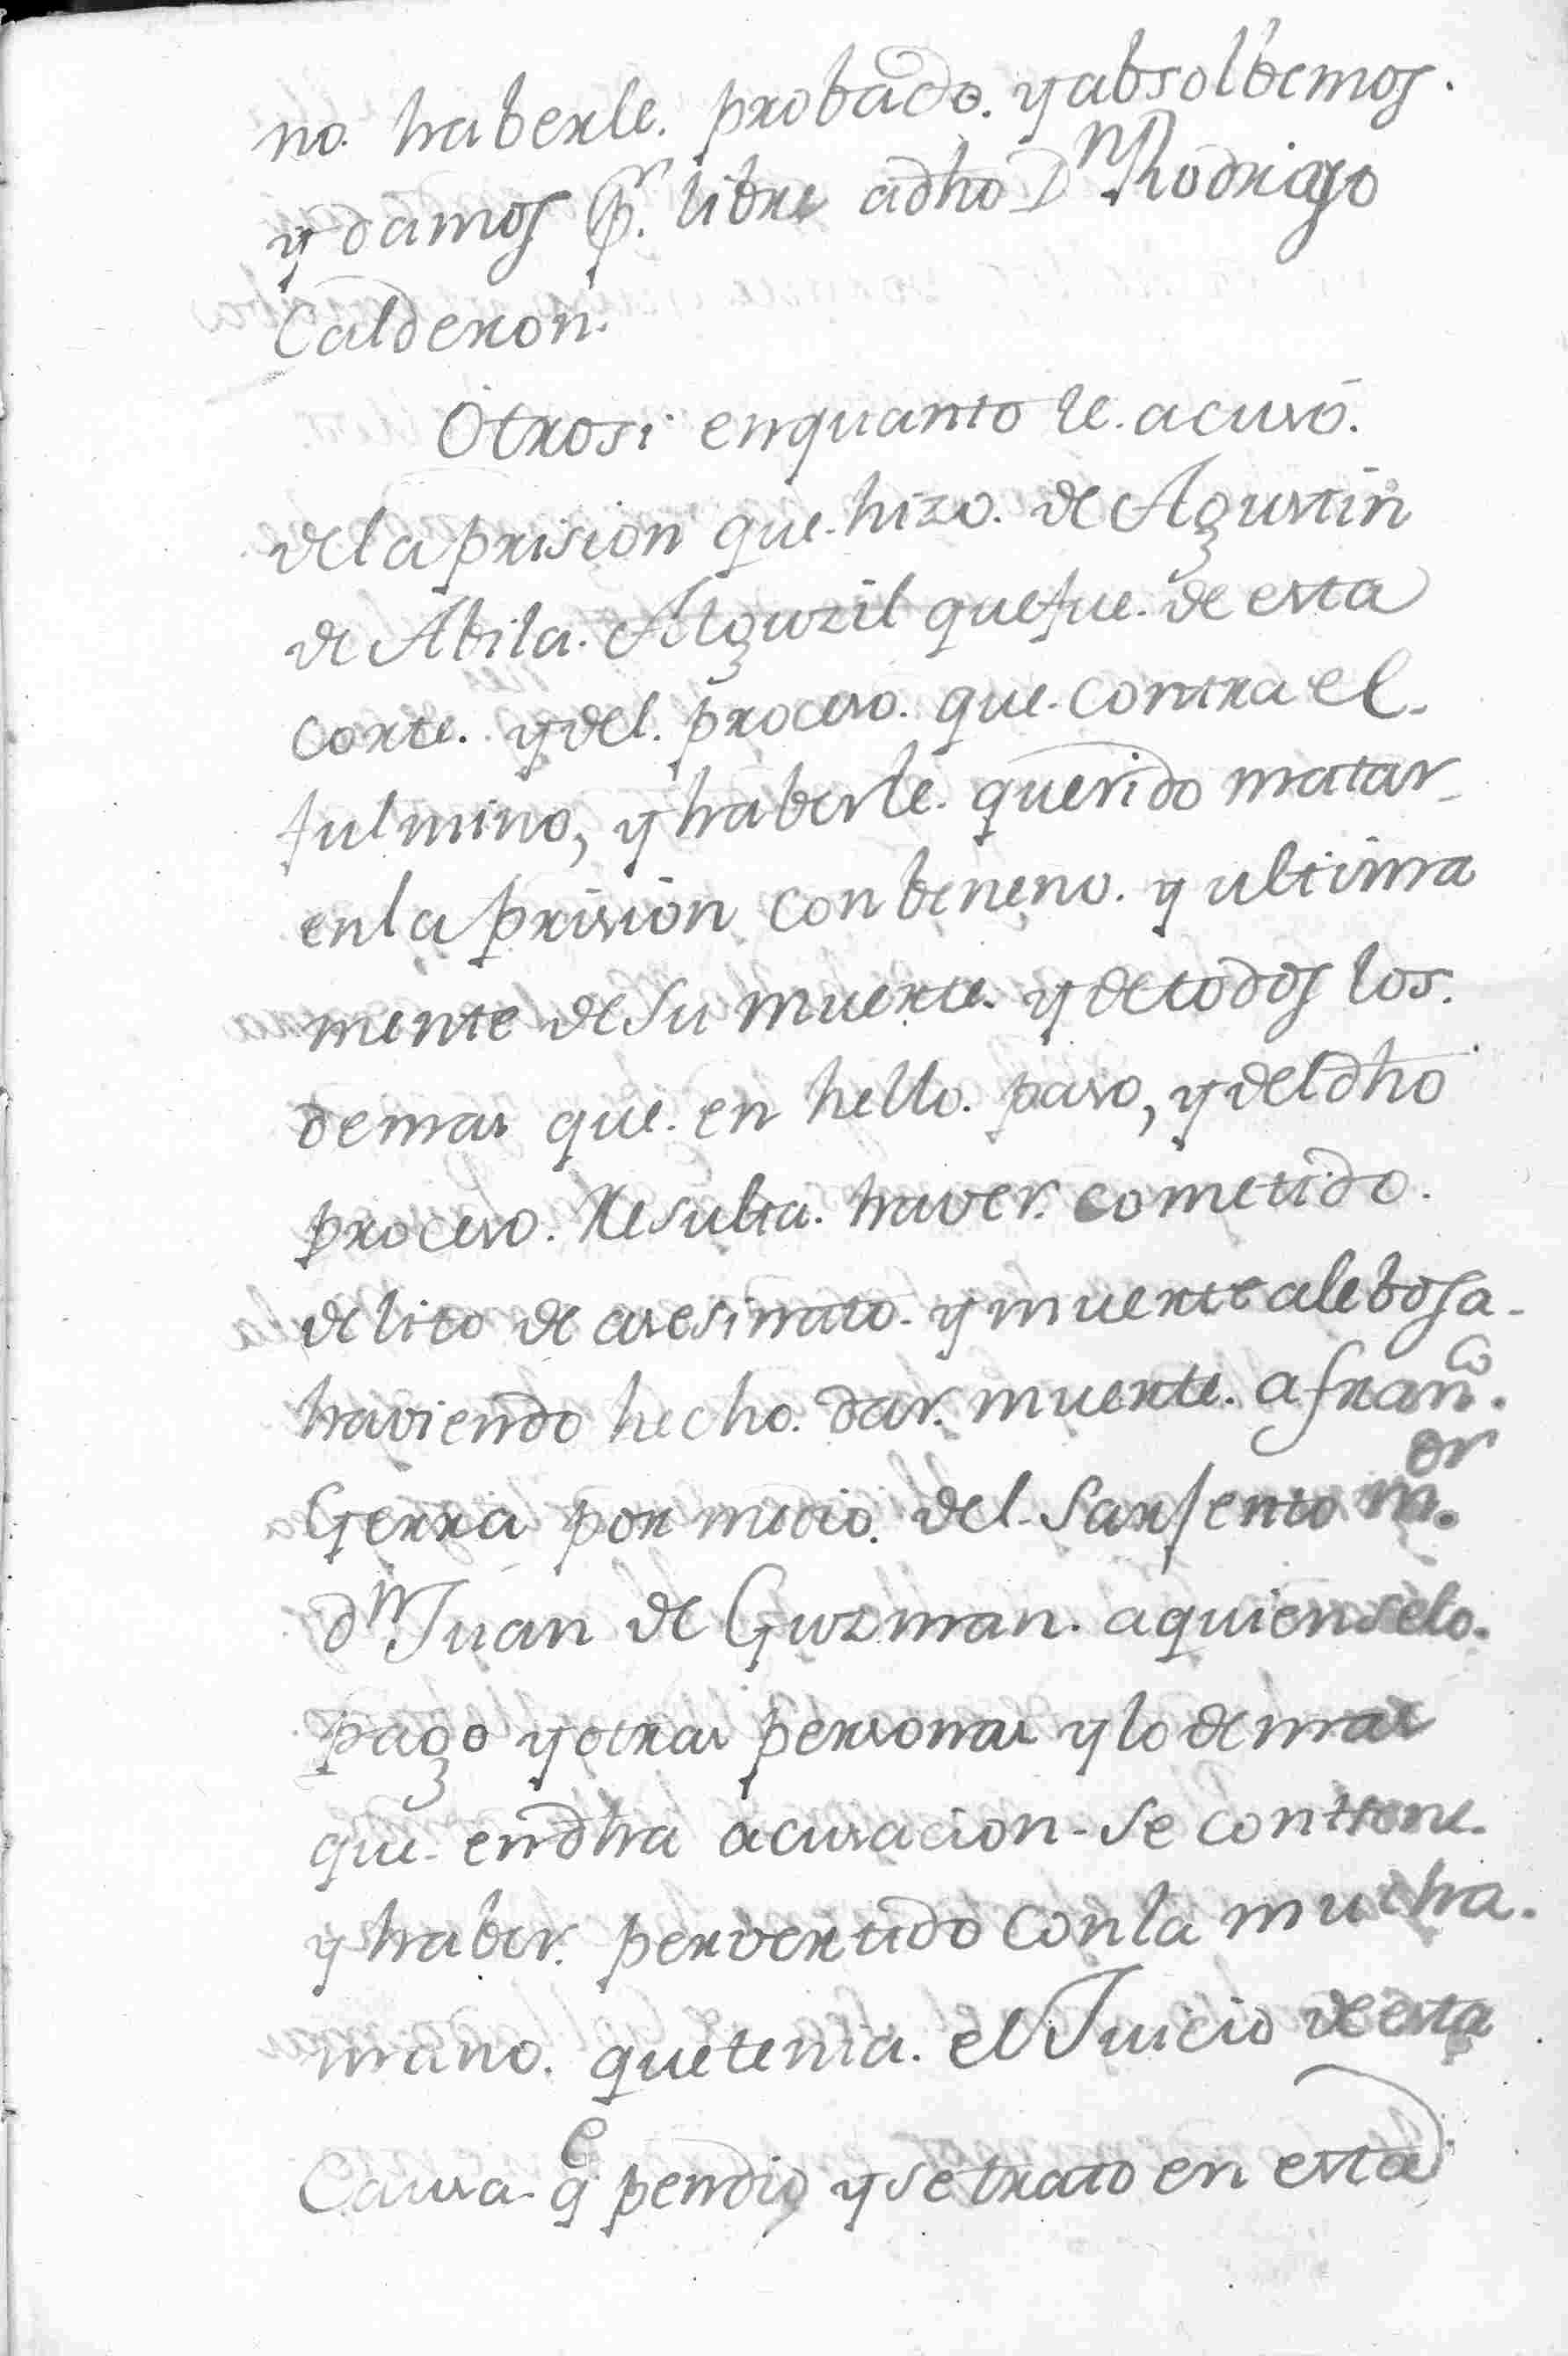 no. haberle. probado. y absolbemos.
y damos p.r libre a dho Dn Rodrigo
Calderon.
Otrosi enquanto le. acusó.
de la prision que. hizo. de Agustin
de Abila. Alguzil que fue. de esta
corte. y del. proceso. que. contra el.
fulmino, y haberle. querido matar
en la prision con beneno. y ultima
mente de su muerte. y de todos los.
demas que. en hello. paso, y del dho
proceso. Resulta. haver. cometido.
delito de asesinato. y muerte alebosa.
haviendo hecho. dar. muerte. a franco.
Gerra por medio. del. Sarjento m.or
dn Juan de Guzman. a quien selo.
pago y otras personas y lo demas
que. en dha acusacion. se contiene.
y haber. pervertido con la mucha.
mano. que tenia. el Juicio de esta
Causa. qe pendio y se trato en esta